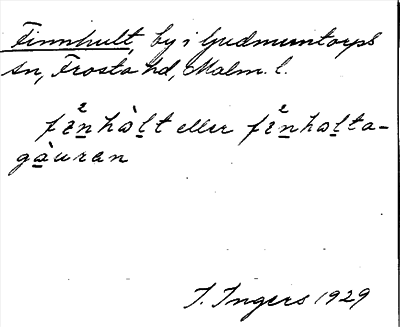 Finnhult, by i Gudmuntorps
sn, Frosta hd, Malm. l.
fìn̲hòl̲t eller fìn̲hol̲ta-
gàuran
I. Ingers 1929